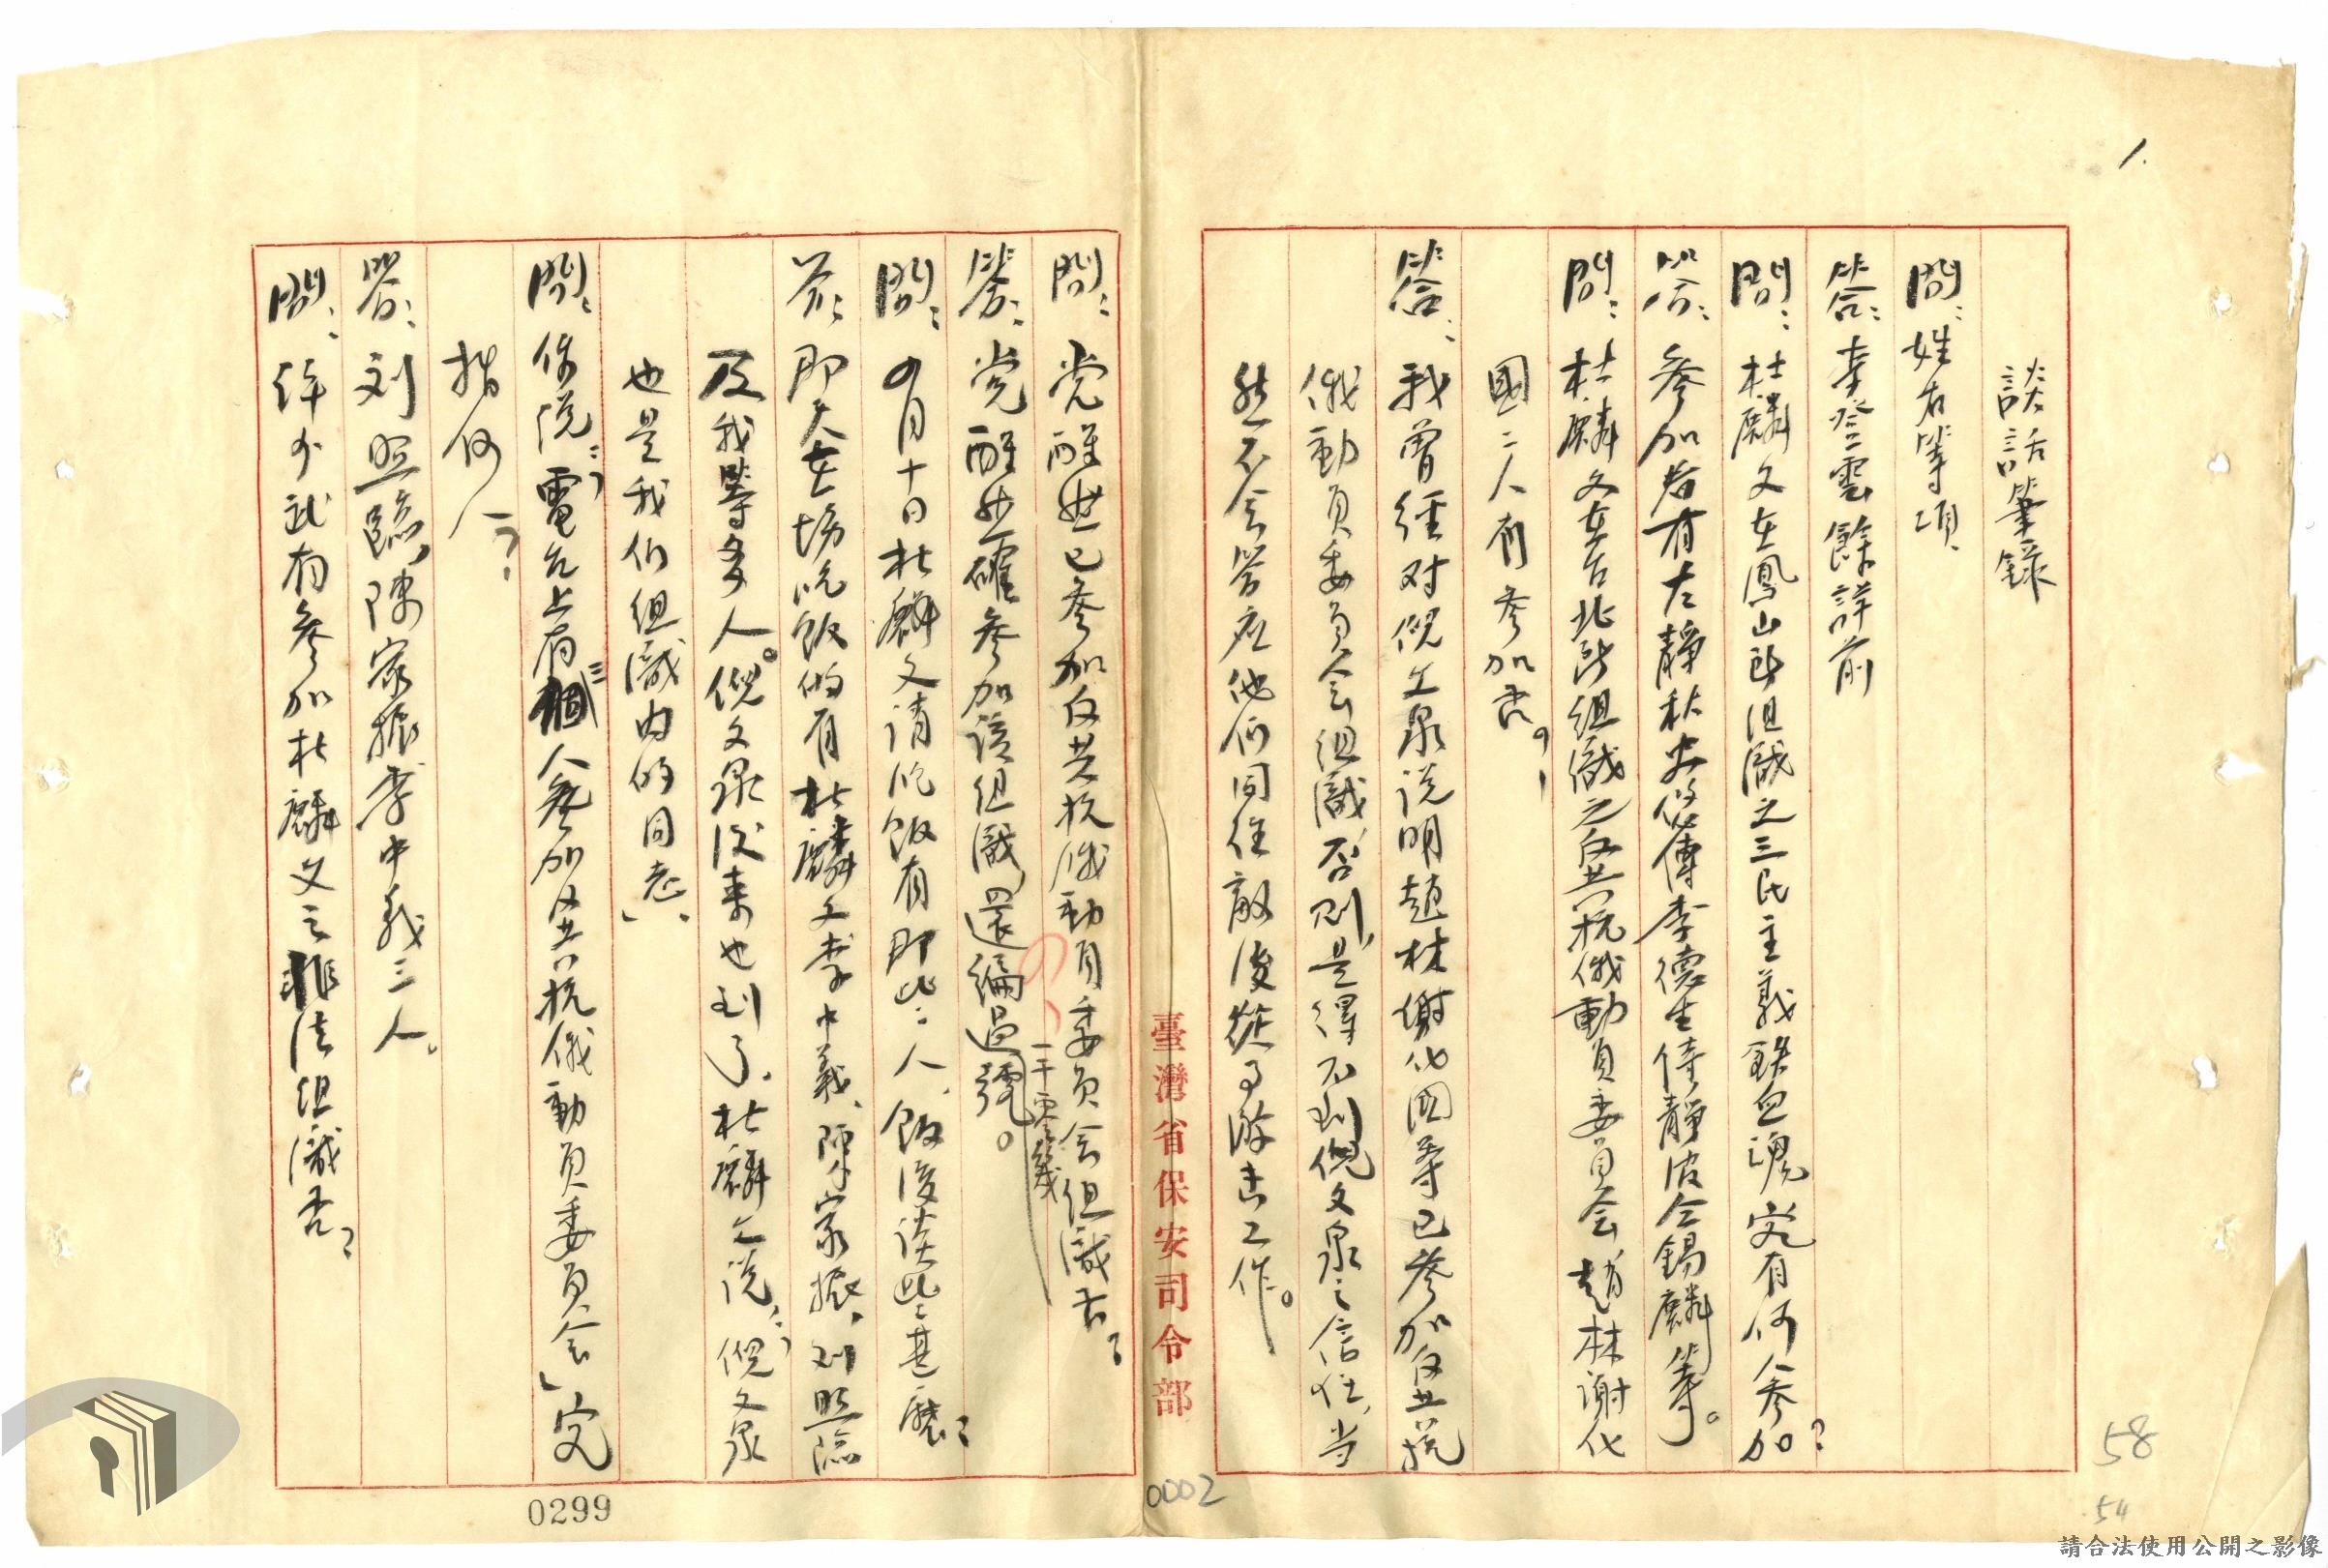 1.
談話筆錄
問：姓名等項
答：李登雲餘詳前
問：杜麟文在鳳山時組識之三民主義鉄血魂究有何人參加？
答：參加者有左靜秋 李德生 靜波 錫麟等。
問：杜麟文在台北時組識之反共抗俄動員委員会趙林謝代
國二人有參加否？
答：我曾經对倪文泉说明趙林謝代國等已參加反共抗
俄動員委員会組識否則是得不到倪文泉之信任，当
然不会答应他們同往敵後從了游击工作。
臺灣省保安司令部
問：党醒世已參加反共抗俄動員委員会組識否？
答：党醒世確參加該組識還編過號。
一千零幾
問：四月十日杜麟文请吃飯有那些人，飯後談些甚麽？
答：那天在場吃飯的有杜麟文李中義、陳家振、刘照臨
及我等多人。倪文泉後来也到了，杜麟文说：「倪文泉
也是我们组識内的同志」。
問：你说：「電台上有三人參加反共抗俄動員委員会」究
指何人？
答：刘照臨，陳家振李中義三人。
問：許少武有參加杜麟文之非法组識否？
0299
0002
58
54
請合法使用公開之影像